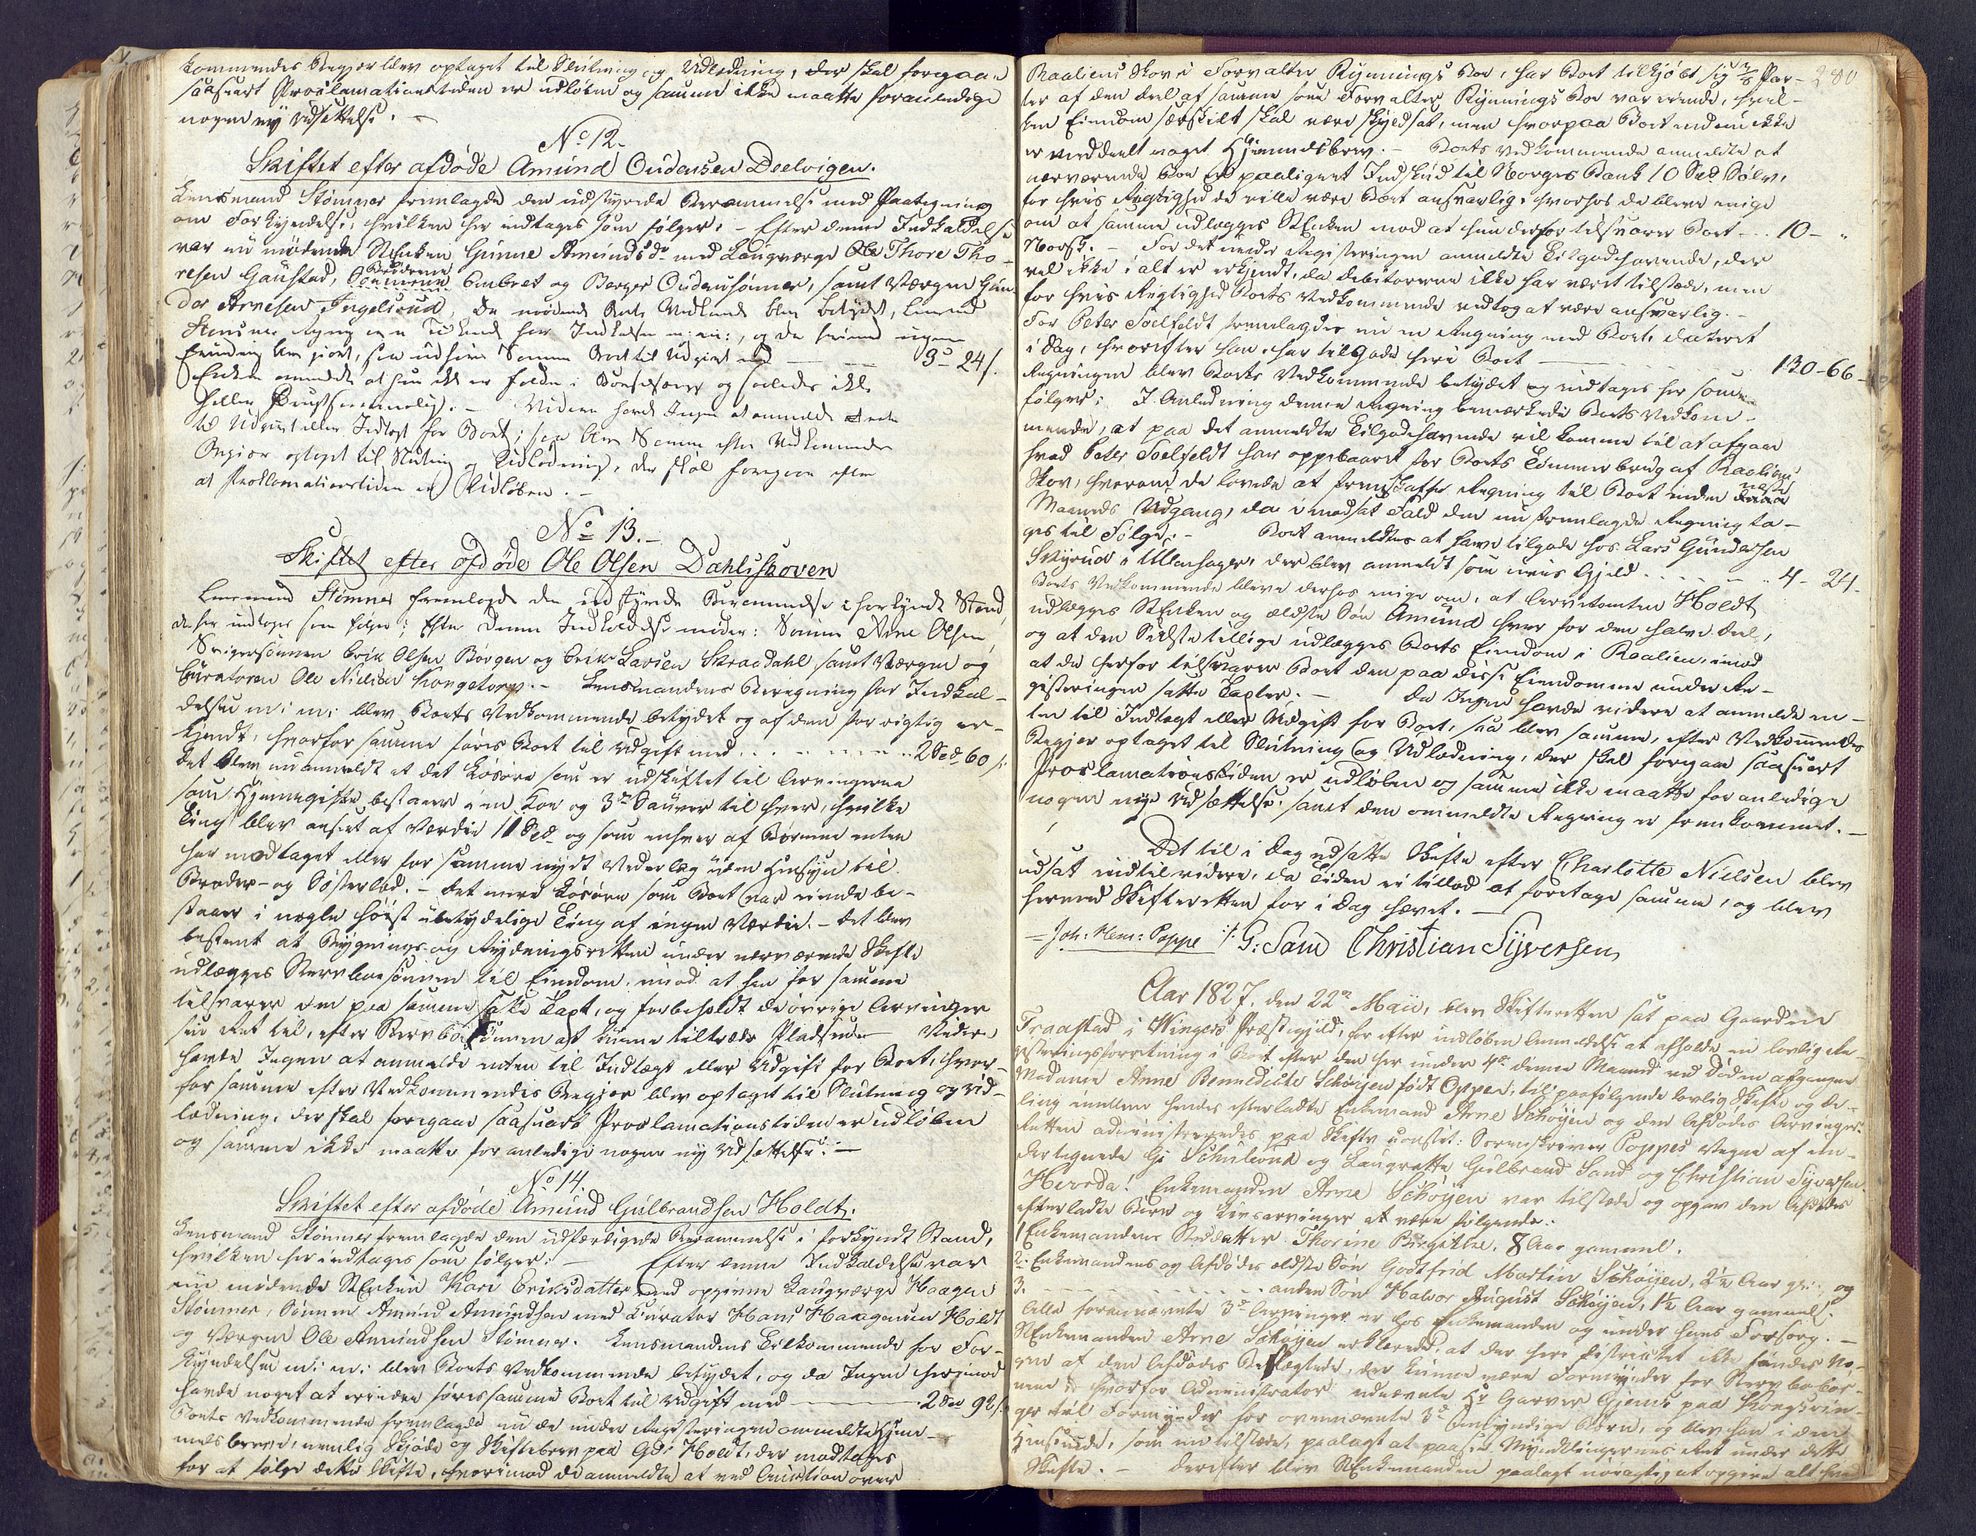 kommendes Begjær blev optaget til Slutning og Udlodning, der skal foregaae
saasnart Proclamationstiden er udløben og samme ikke maatte foranledige
nogen ny Udsættelse. -
No 12.
Skiftet efter afdøde Amund Oudensen Deelvigen.
Lensmand Stømner fremlagde den udstyrede Berammelse med Paategning
om Forkyndelse, hvilken her indtages som følger: - Efter denne Indkaldelse
var nu mødende Enken Gunne Amundsdr med Laugværge Ole Thore Tho-
resen Gaustad, Brødrene Embret og Berger Oudensønner, samt Værgen Gun-
der Arnesen Ingelsrud,
3 - 24 s.
Enken anmeldte at hun ikke er
heller - Videre havde Ingen at anmelde
til Udgift eller Indtægt for Boet; saa blev Samme efter Vedkommendes
Begjær optaget til Slutning og Udlodning, der skal foregaae efter
at Proklamationstiden er udløben. -
No 13. -
Skiftet efter afdøde Ole Olsen Dahlskoven
Lensmand Stømner fremlagde den udstyrede Berammelse i forkyndt Stand,
der her indtages som følger; Efter denne Indkaldelse møder: Sønnen Arne Olsen,
Svigersønnen Erik Olsen Børgen og Erik Larsen Skraadahl samt Værgen og
Curatoren Ole Nielsen Kongetorp. - Lensmandens Beregning for Indkal-
delsen m: m: blev Boets Vedkommende betydet og af dem for rigtig er-
kjendt, hvorfor samme føres Boet til Udgift med 2 Spd 60 s:
Det blev nu anmeldt at det Løsøre som er udskiftet til Arvingerne
som Hjemmegifte bestaaer i en Koe og 3de Sauer til hver, hvilke
Ting blev anseet af Værdie 11 Spd og som enhver af Børnene enten
har modtaget eller for samme nydt Vederlag uden Hensyn til
Broder- og Søsterlod. - Det mere Løsøre som Boet var eiende be-
staaer i nogle høist ubetydelige Ting af ingen Værdie. - Det blev
bestemt at Bygnings og Rydningsretten under nærværende Skifte
udlægges Stervboesønnen til Eiendom, imod at han for samme
tilsvarer den paa samme satte Taxt, og forbeholdt de øvrige Arvinger
sin Ret til, efter Stervboesønnen at kunne tiltræde Pladsen. Videre
havde Ingen at anmelde enten til Indtægt eller Udgift for Boet, hvor-
for samme efter Vedkommendes Begjær blev optaget til Slutning og Ud-
lodning, der skal foregaae saasnart Proclamationstiden er udløben
og samme ikke maatte foranledige nogen ny Udsættelse. -
No 14.
Skiftet efter afdøde Amund Gulbrandsen Holdt.
Lensmand Stømner fremlagde den udfærdigede Berammelse i forkyndt Stand,
hvilken her indtages som følger: - Efter denne Indkaldelse var
nu mødende Enken Kari Eriksdatter med opgivne Laugværge Haagen
Stømner, Sønnen Amund Amundsen med Curator Hans Haagensen Holdt
og Værgen Ole Amundsen Stømner. Lensmandens Tilkommende for For-
kyndelsen m: m: blev Boets Vedkommende betydet, og da Ingen herimod
havde noget at erindre føres samme Boet til Udgift med 2 Spd 92 s
Boets Vedkommende fremlagde nu de under Registeringen anmeldte Hjem-
melsbreve, nemlig Skjøde og Skiftebrev paa Gd: Holdt, der modtages
for at følge dette Skifte, hvorimod de anmeldte at ved Auction over
280
Raaliens Skov i Forvalter Rynnings Boe, har Boet tilkjøbt sig 2/8 Par-
ter af den deel af samme som Forvalter Rynnings Boe var eiende, hvil-
ken Eiendom særskilt skal være skyldsat, men hvorpaa Boet endnu ikke
er meddeelt noget Hjemmelsbrev. - Boets Vedkommende anmeldte at
nærværende Boe er paalignet Indskud til Norges Bank 10 Spd Sølv,
for hvis Rigtighed de ville være Boet ansvarlig; hvorhos de bleve enige
om at samme udlægges Enken mod at hun derfor tilsvarer Boet 10 - "
Norsk. - For det under Registeringen anmeldte Tilgodehavende, der
vel ikke i alt er erkjendt, da debitorerne ikke har været tilstæde, men
for hvis Rigtighed Boets Vedkommende vedtog at være ansvarlig. -
For Peter Soelfeldt fremlagdes nu en Regning med Boet, dateret
i dag, hvorefter han har tilgode her i Boet 130 - 66 -
Regningen blev Boets Vedkommende betydet og indtages her som
følger; I Anledning denne Regning bemærkede Boets Vedkom-
mende, at paa det anmeldte Tilgodehavende vil komme til at afgaae
hvad Peter Soelfeldt har oppebaaret for Boets Tømmerbrug af Raaliens
Skov, hvorom de lovede at fremskaffe Regning til Boet inden næste
Maaneds Udgang, da i modsat Fald den nu fremlagde Regning ta-
ges til Følge. - Boet anmeldtes at have tilgode hos Lars Gundersen
Skyrud i Ullensager, der blev anmeldt som uvis Gjeld 4 - 24 -
Boets Vedkommende bleve derhos enige om, at Arvetomten Holdt
udlægges Enken og ældste Søn Amund hver for den halve deel,
og at den Sidste tillige udlægges Boets Eiendom i Raalien, imod
at de herfor tilsvarer Boet den paa disse Eiendomme under Re-
gisteringen satte Taxter. - Da Ingen havde videre at anmelde en-
ten til Indtægt eller Udgift for Boet, saa blev samme, efter Vedkommendes
Begjær optaget til Slutning og Udlodning, der skal foregaae saasnart
Proclamationstiden er udløben og samme ikke maatte foranledige
nogen nye Udsættelse, samt den anmeldte Regning er fremkommet. -
Det til i Dag udsatte Skifte efter Charlotte Nielsen blev
udsat indtil videre, da Tiden ei tillod at foretage samme, og blev
hermed Skifteretten for i Dag hævet. -
- Joh: Hen: Poppe :/: G: Sand Christian Syversen
Aar 1827. den 22de Maii, blev Skifteretten sat paa Gaarden
Fraastad i Wingers Præstegjeld, for efter indløben Anmeldelse at afholde en lovlig Re-
gisteringsforretning i Boet efter den her under 4de denne Maaned ved Døden afgangne
Madame Anne Bennedicte Schøyen født Oppen, til paafølgende lovlig Skifte og De-
ling imellem hendes efterladte Enkemand Arne Schøyen og den Afdødes Arvinger.
Retten administreredes paa Skifte constit: Sorenskriver Poppes Vegne af un-
dertegnede G: Schulerud og Laugrette Gulbrand Sand og Christian Syversen
Herreda! Enkemanden Arne Schøyen var tilstede og opgav den Afdødes
efterladte Børn og Livsarvinger at være følgende:
1, Enkemandens Steddatter Thorine Birgitte, 8 Aar gammel.
2. Enkemandens og Afdødes ældste Søn Godtfrid Martin Schøyen, 2½ Aar gl: og
3. - - - - - - anden Søn Halvor August Schøyen, 1½ Aar gammel.
Alle forennævnte 3de Arvinger er hos Enkemanden og under hans Forsorg. -
Enkemanden Arne Schøyen erklærede, at der her i Districtet ikke fandtes No-
gen af den Afdødes Beslægtede, der kunne være Formynder for Stervboebør-
nene, hvorfor Administrator udnævnte Hr Garver Gjems paa Kongsvin-
ger til Formynder for ovennævnte 3de Umyndige Børn, og blev han i den
Henseende, som nu tilstæde, paalagt at paasee Myndlingernes Ret under dette
Skifte. - Derefter blev Enkemanden paalagt nøiagtig at opgive alt hvad